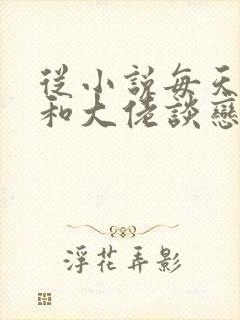 從小說每天
和大佬談戀
浮花弄影